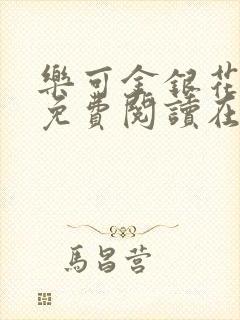 樂可金銀花
免費閱讀在
馬昌营